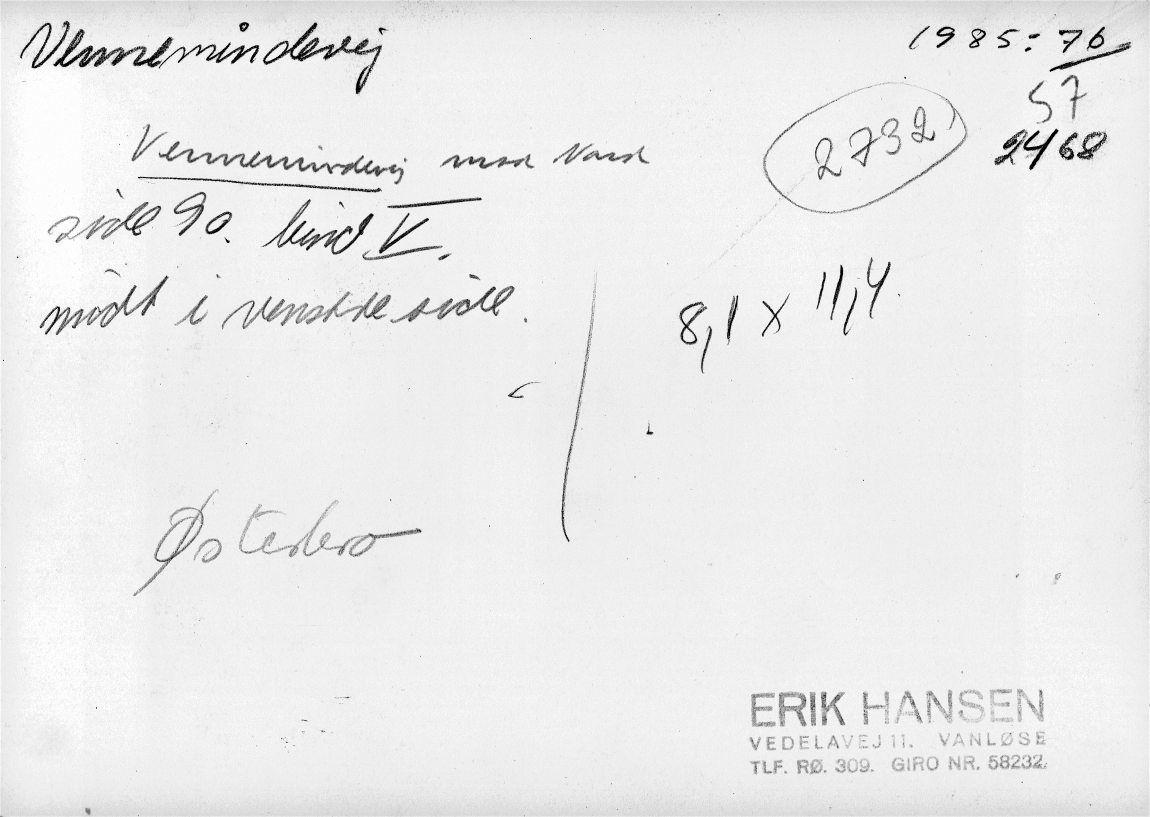 Vennemindevej
1985:76
57
2468
2732
Vennemindevej mod Nord
side 90. bind V.
midt i venstre side.
8,1 x 11,4
Østerbro
ERIK HANSEN
VEDELAVEJ 11. VANLØSE
TLF. RØ. 309. GIRO NR. 58232.